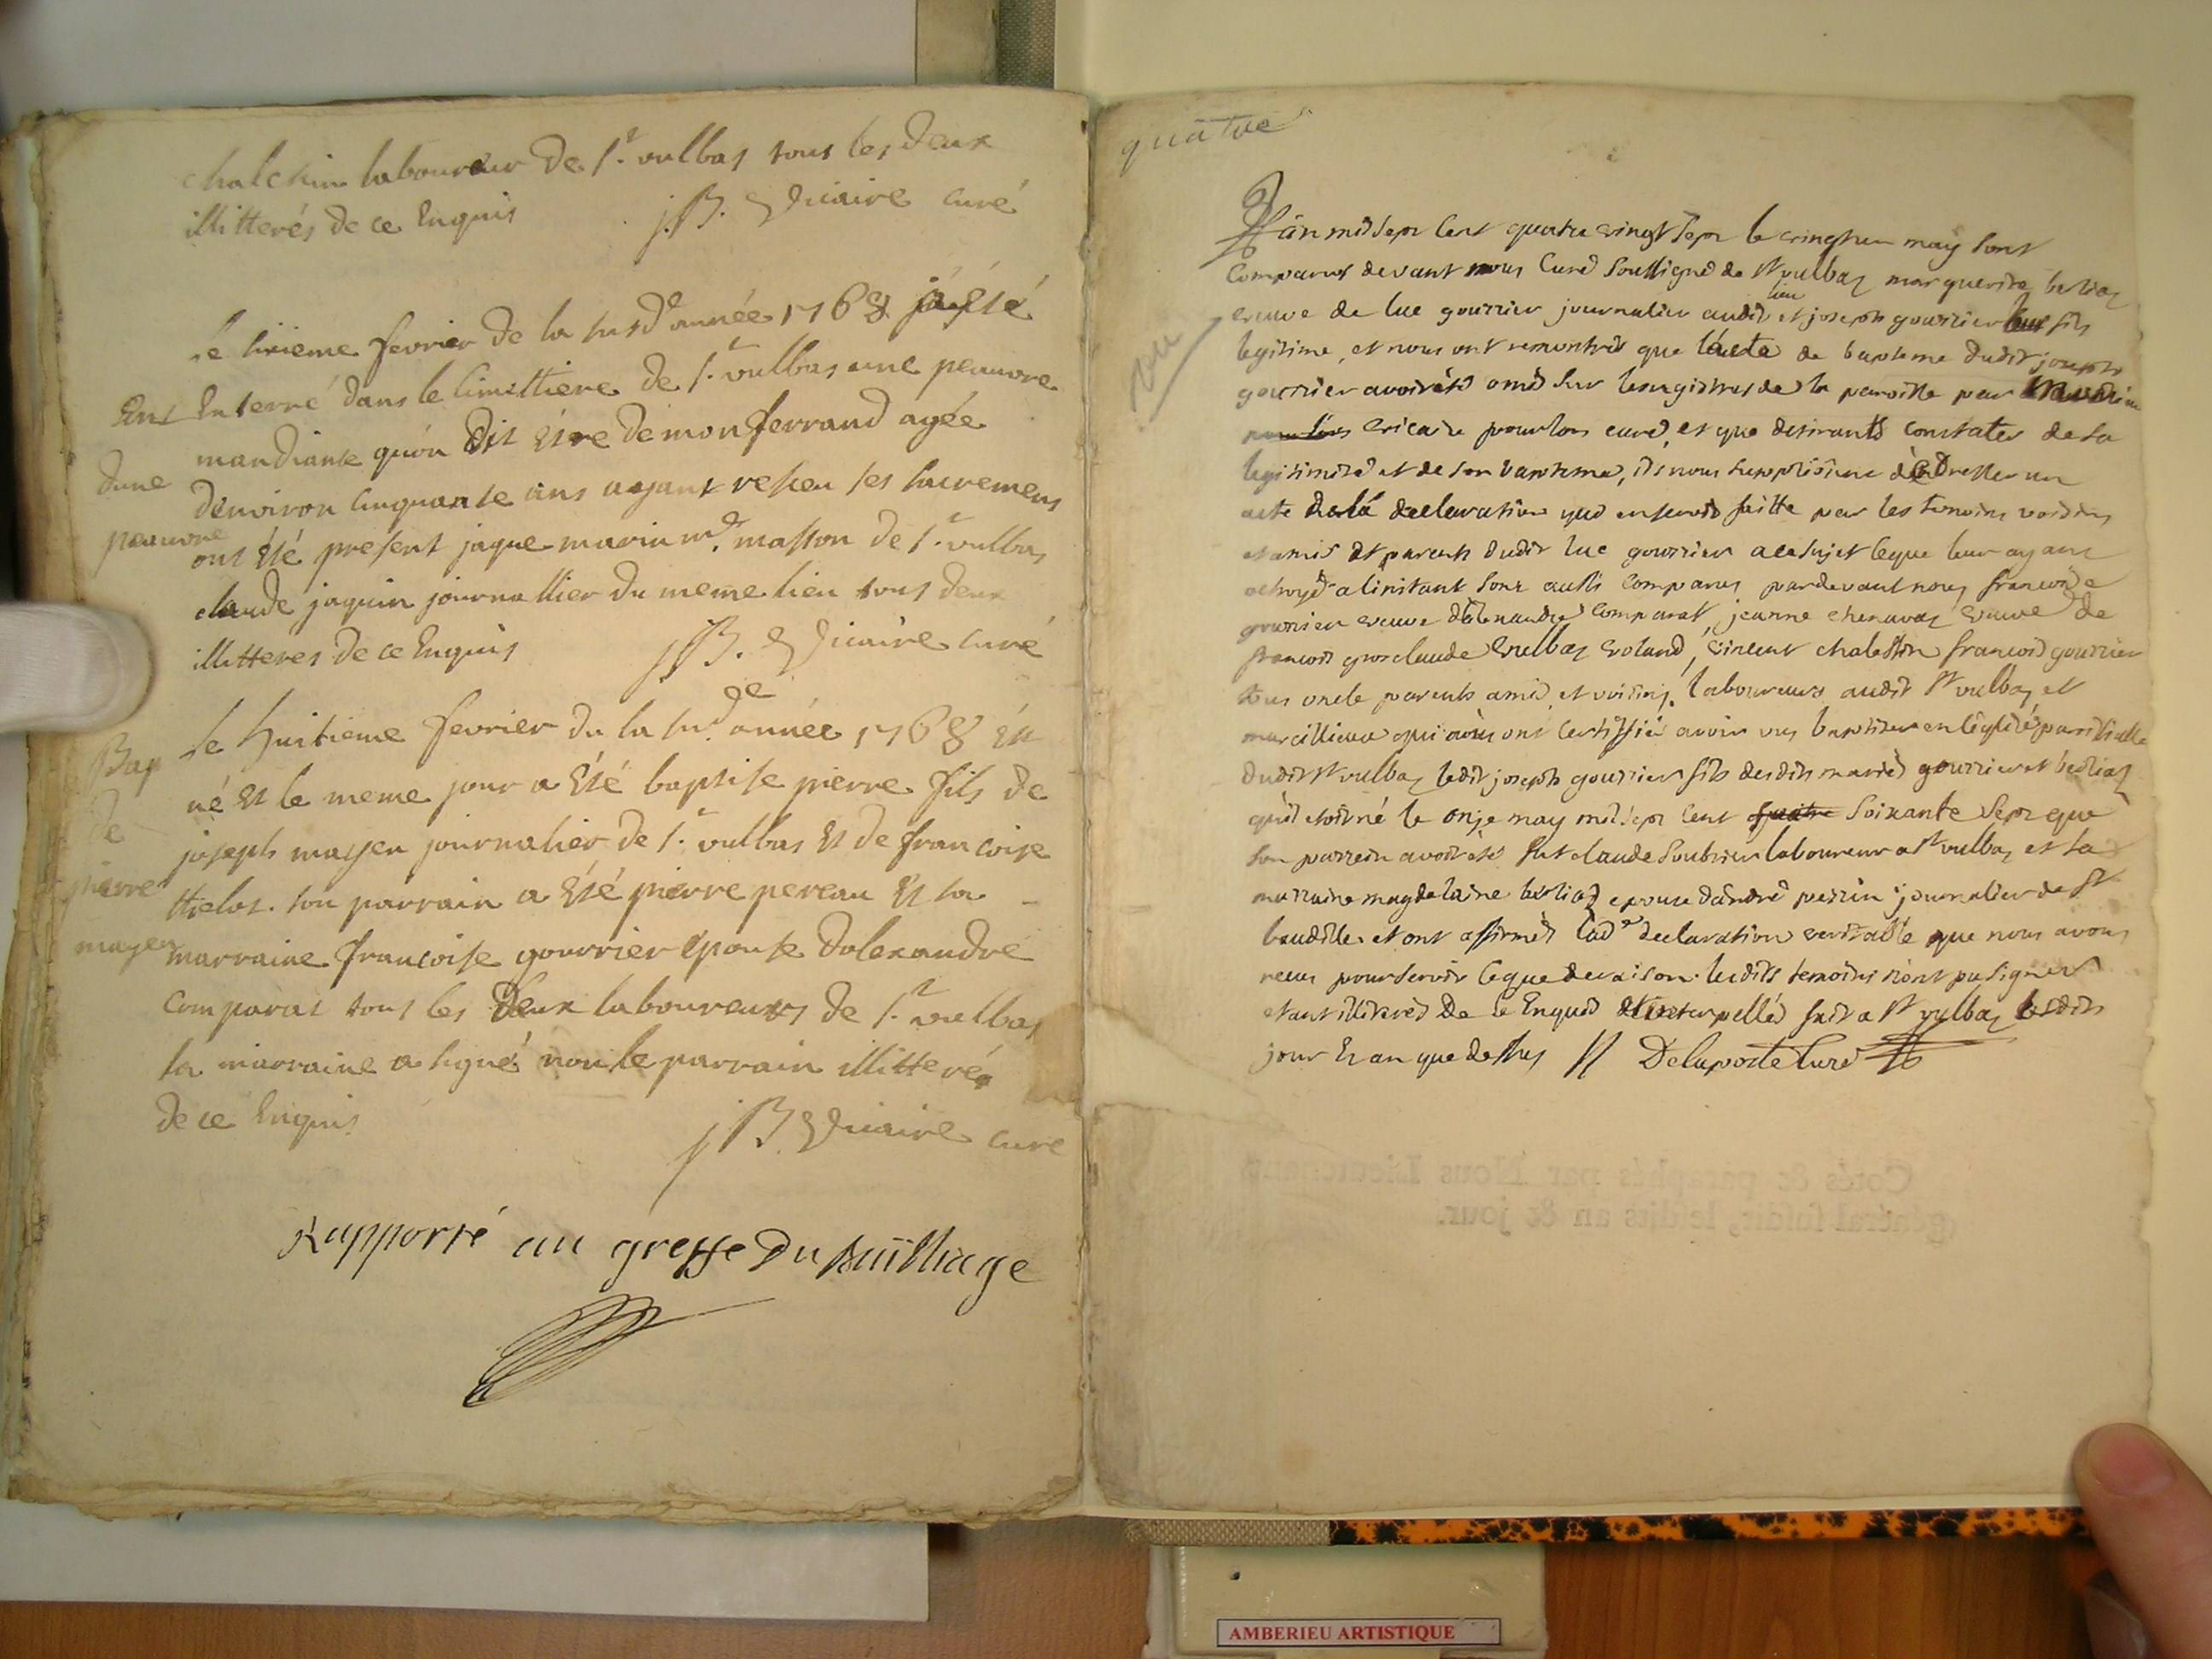 chaleskin laboureur de st. vulbas tous les deux
illitterés de ce enquis j.B. Vicaire curé
le sixieme fevrier de la susde année 1768 a été
Ent enterré dans le cimittiere de st. vulbas une peauvre
mandiante qu'on dit étre de monferrand agée
dune
d'environ cinquante ans ayant resceu ses sacremens
peauvre
ont été present jaque marin md. masson de st. vulbas
claude jaquin journallier du meme lieu tous deux
illitteres de ce enquis j.B. Vicaire curé
Bap le huitieme fevrier de la susde année 1768 est
né et le meme jour a été baptise pierre fils de
de
joseph mayen journalier de st. vulbas et de francoise
pierre
thelos. son parrain a été pierre pereau et sa
mayen marraine francoise gourrier epouse dalexandre
comparat tous les deux laboureurs de st. vulbas
la marraine a signé non le parrain illitteré
de ce enquis
jB Vicaire curé
Rapporté au greffe du bailliage
quatre
vu
L'an mil sept cent quatre vingt sept le vingt un may sont
comparus devant nous curé soussigné de st vulbas marguerite berliaz
veuve de luc gourrier journalier audit lieu et joseph gourrier leur fils
legitime, et nous ont remontré que l'acte de bapteme dudit joseph
gourrier avoit été omis sur les registres de la paroisse par
vicaire pour lors curé, et que desirants constater de sa
legitimité et de son bapteme, ils nous supplioient d'adresser un
acte de la declaration qui en seroit faitte par les temoins voisins
et amis et parents dudit luc gourrier a ce sujet leque leur ayant
octroyé a linstant sont aussi comparus pardevant nous francoise
gourrier veuve dalexandre comparat, jeanne chenavaz veuve de
francois grosclaude vulbas roland, vincent chaleskin francois gourrier
tous oncle parents amis et voisins, laboureurs audit st vulbas et
marcillieux qui nous ont certiffié avoir vus baptiser en l'eglise paroissialle
dudit st vulbas ledit joseph gourrier fils desdits mariés gourrier et berliaz
qu'il etoit né le onze may mil sept cent quatre soixante sept que
son parrein avoit été fut claude soubrier laboureur a st vulbas et sa
marraine magdelaine berliaz epouse d'andré perrin journalier de st
baudille et ont affirmés lade declaration veritable que nous avons
receu pour servir leque de raison. lesdits temoins n'ont pu signer
etant illiterés de ce enquis et interpellés fait a st vulbas lesdits
jour et an que dessus Delaporte curé
Cotés & paraphés par Nous Lieutenant
général susdit, lesdits an & jour.
AMBERIEU ARTISTIQUE